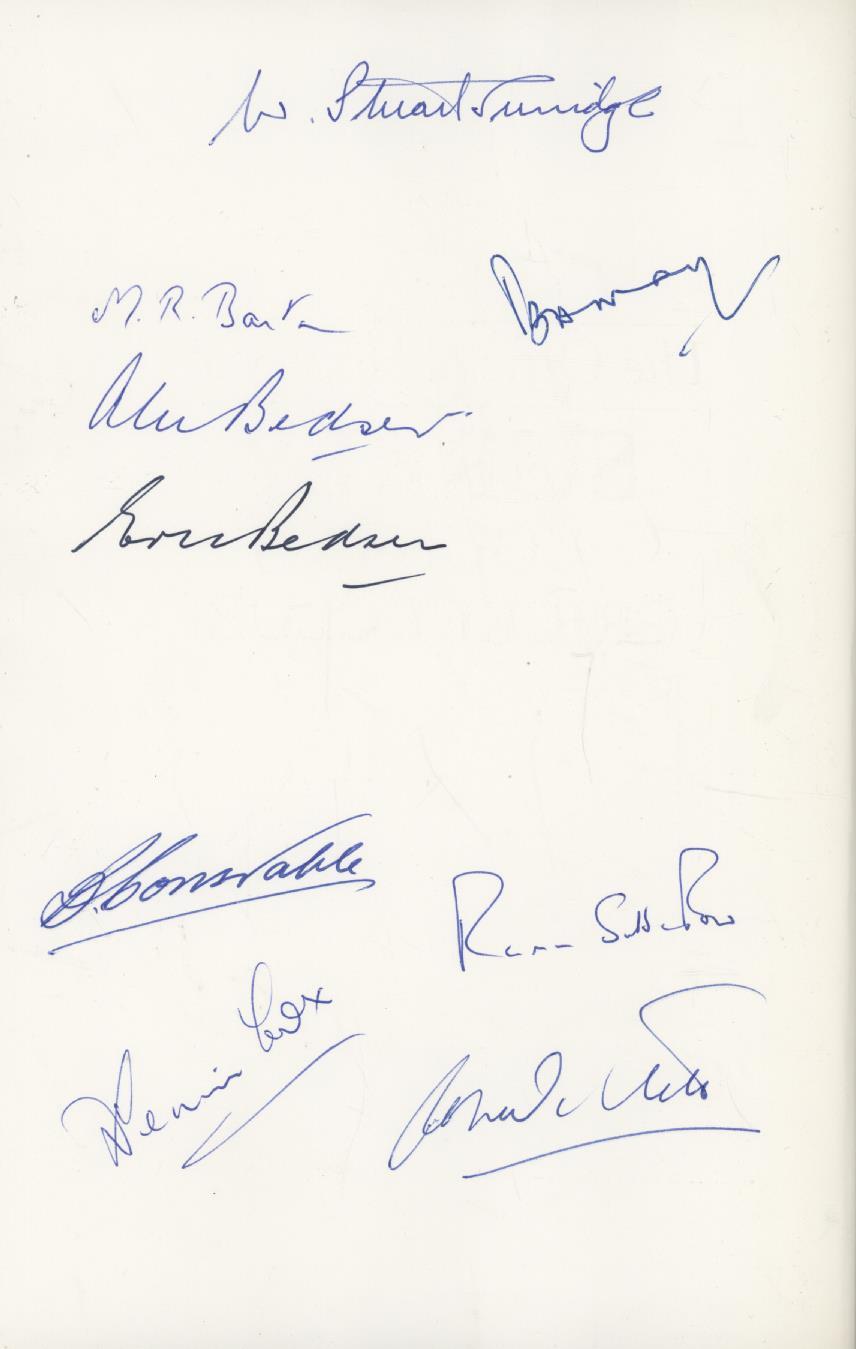 W. Stuart Surridge
M. R. Barton
Alec Bedser
Eric Bedser
B. Constable
Raman Subba Row
Dennis Cox